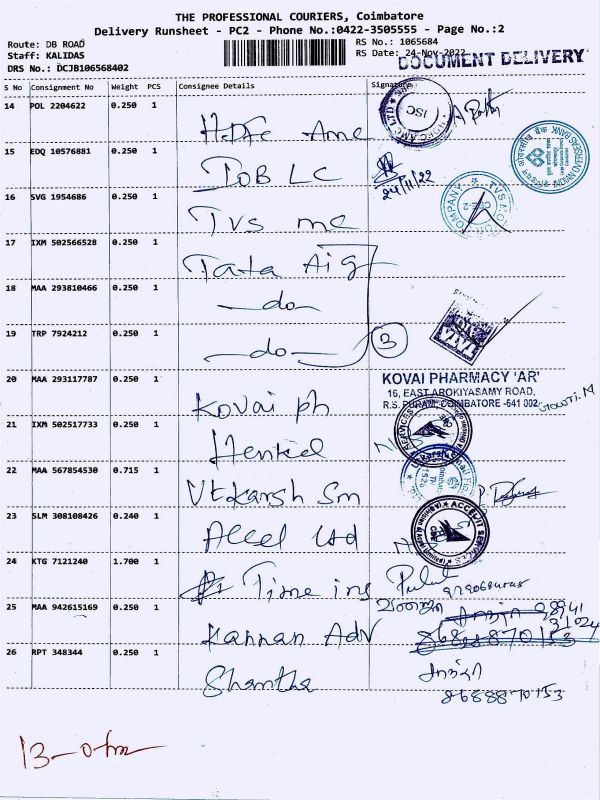 THE PROFESSIONAL COURIERS, Coimbatore
Delivery Runsheet - PC2 - Phone No.:0422-3505555 - Page No.:2
Route: DB ROAD
Staff: KALIDAS
DRS No.: DCJB106568402
RS No.: 1065684
RS Date: 24-Nov-2022
DOCUMENT DELIVERY
S No Consignment No Weight PCS Consignee Details Signature
14 POL 2204622 0.250 1 HDFC Amc
15 EDQ 10576881 0.250 1 IOB LC 24/11/22
16 SVG 1954686 0.250 1 TVS mc
17 IXM 502566528 0.250 1 Tata Aig
18 MAA 293810466 0.250 1 —do—
19 TRP 7924212 0.250 1 —do— 3
20 MAA 293117787 0.250 1 Kovai ph
KOVAI PHARMACY 'AR'
16, EAST AROKIYASAMY ROAD,
R.S. PURAM, COIMBATORE -641 002
21 IXM 502517733 0.250 1 Henkel
22 MAA 567854530 0.715 1 Utkarsh Sm
23 SLM 308108426 0.240 1 Accel Ltd
24 KTG 7121240 1.700 1 Time ins
25 MAA 942615169 0.250 1 Kannan Adv
26 RPT 348344 0.250 1 Shantha
8688870153